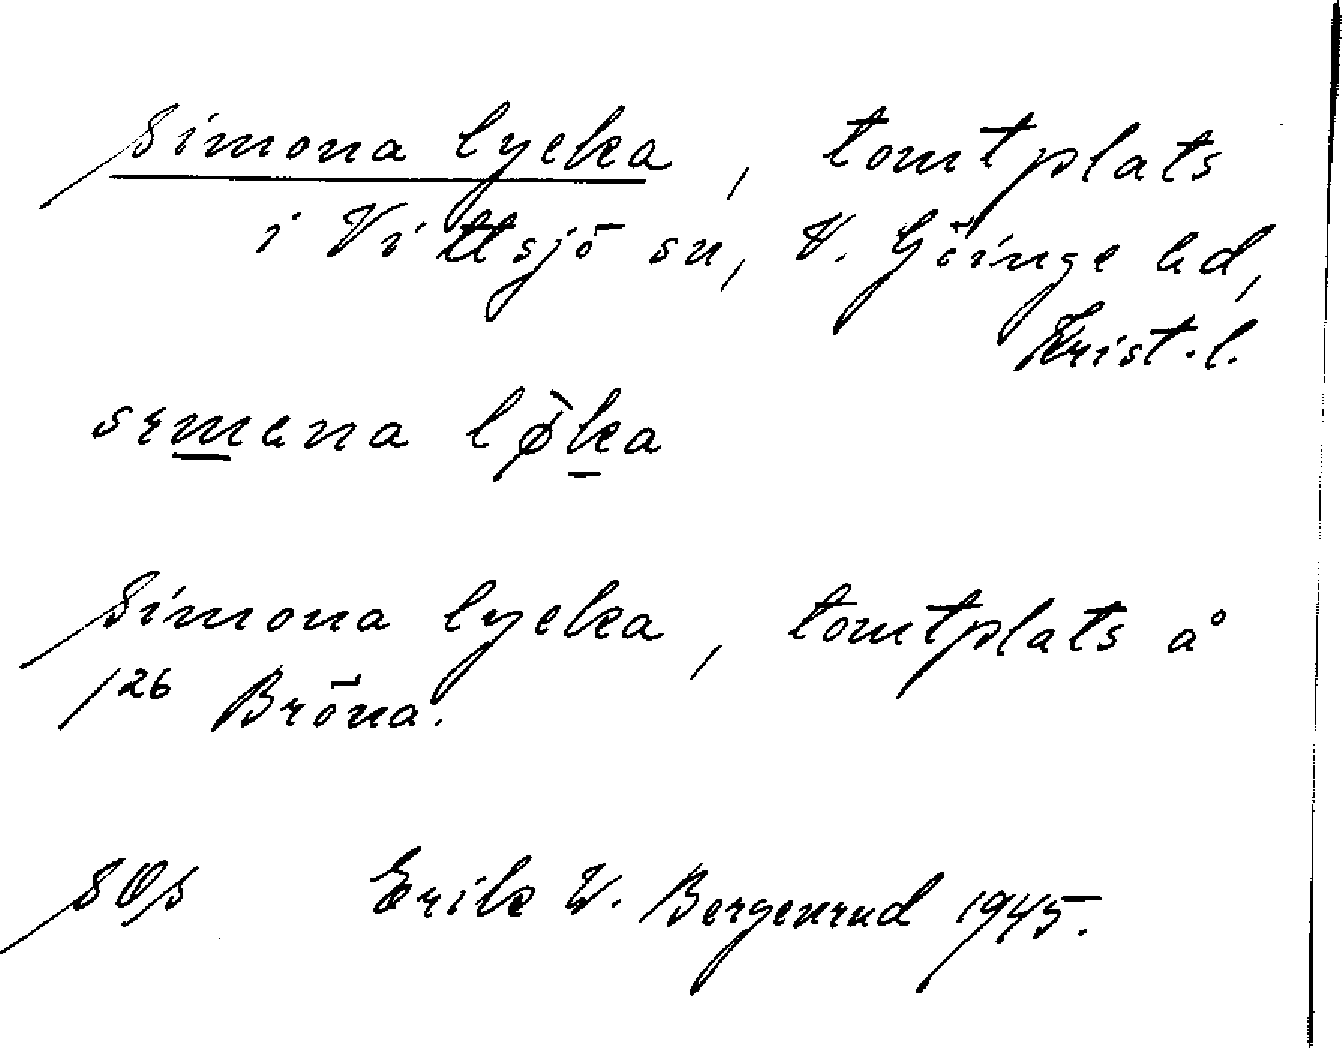 Simona lycka, tomtplats
i Vittsjö sn, V. Göinge hd,
Krist. l.
semena lø̀ka
Simona lycka, tomtplats å
1²⁶ Bröna.
SOs Erik W. Bergenrud 1945.